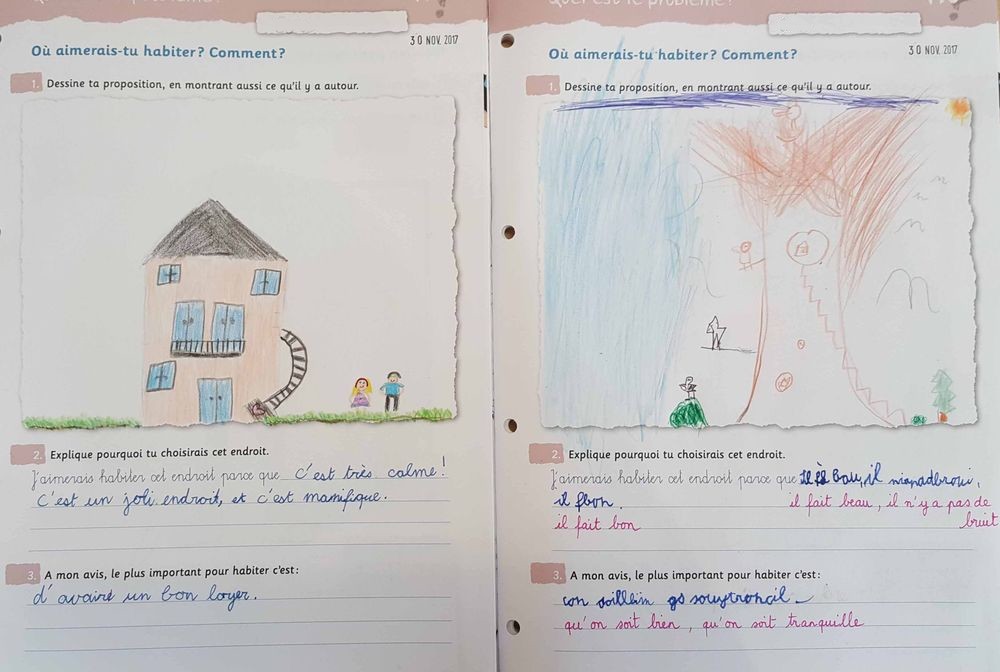 30 NOV. 2017
Où aimerais-tu habiter? Comment?
1. Dessine ta proposition, en montrant aussi ce qu'il y a autour.
2. Explique pourquoi tu choisirais cet endroit.
J'aimerais habiter cet endroit parce que c'est très calme!
C'est un joli endroit, et c'est mamifique.
3. A mon avis, le plus important pour habiter c'est:
d'avairé un bon loyer.
Quel est le problème?
30 NOV. 2017
Où aimerais-tu habiter? Comment?
1. Dessine ta proposition, en montrant aussi ce qu'il y a autour.
2. Explique pourquoi tu choisirais cet endroit.
J'aimerais habiter cet endroit parce que il bau, il
il fbon.
il fait beau, il n'y a pas de
il fait bon
bruit
3. A mon avis, le plus important pour habiter c'est:
qu'on soit bien, qu'on soit tranquille